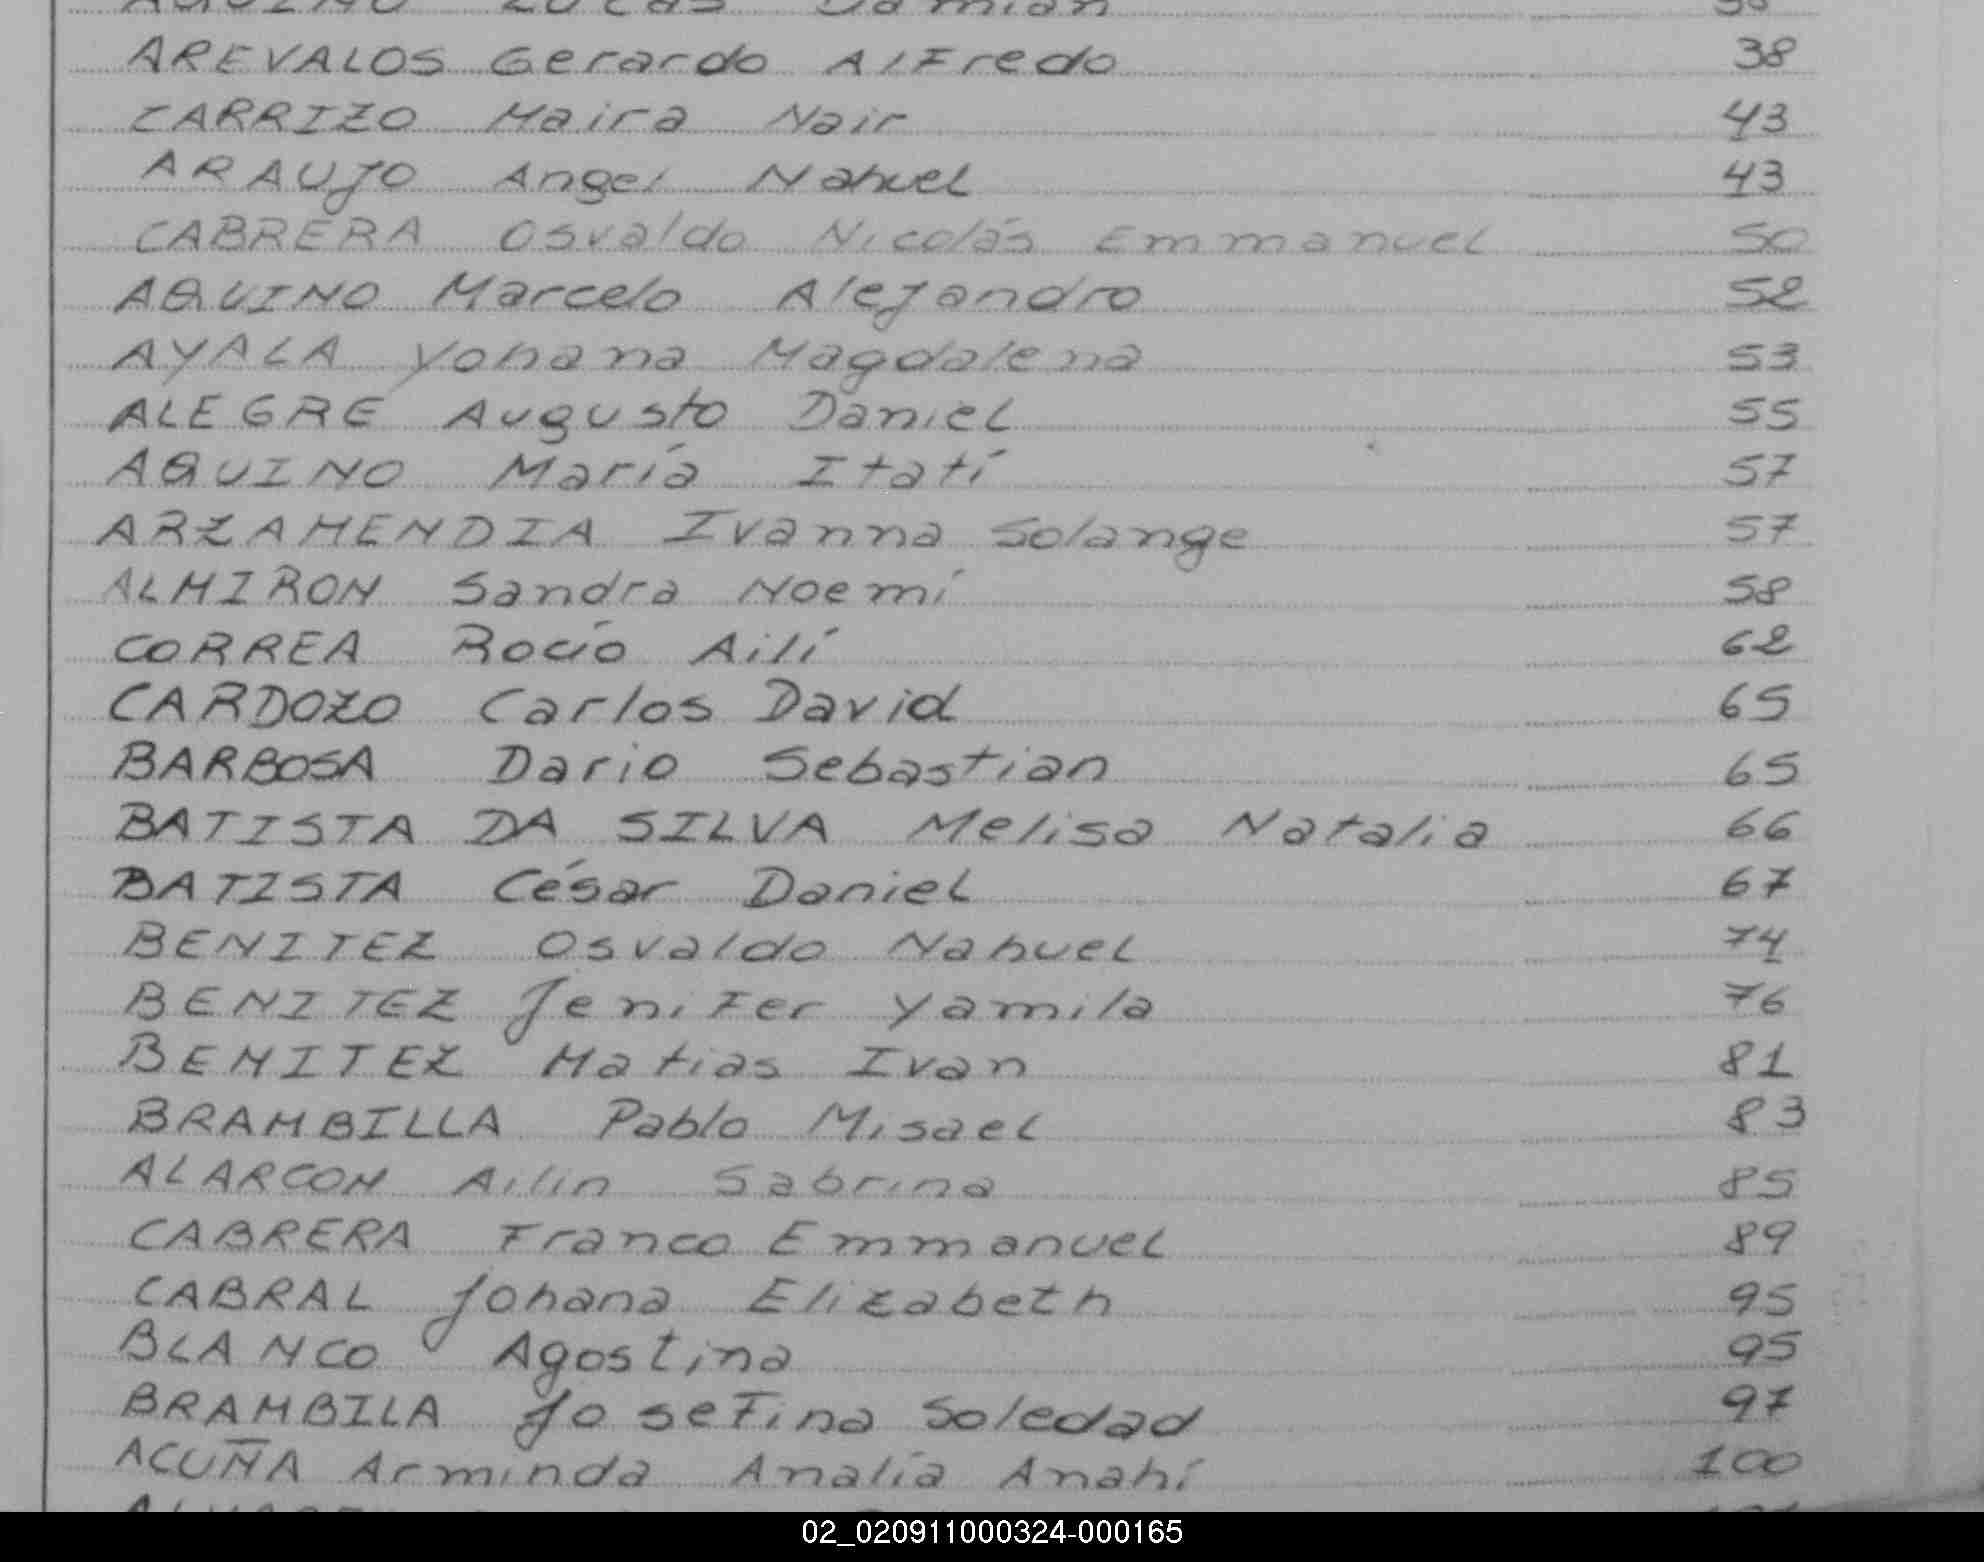 AQUINO Lucas Damian
AREVALOS Gerardo Alfredo 38
CARRIZO Maira Nair 43
ARAUJO Angel Nahuel 43
CABRERA Osvaldo Nicolás Emmanuel 50
AQUINO Marcelo Alejandro 52
AYALA Yohana Magdalena 53
ALEGRE Augusto Daniel 55
AQUINO María Itatí 57
ARZAMENDIA Ivanna Solange 57
ALMIRON Sandra Noemí 58
CORREA Rocío Ailí 62
CARDOZO Carlos David 65
BARBOSA Dario Sebastian 65
BATISTA DA SILVA Melisa Natalia 66
BATISTA César Daniel 67
BENITEZ Osvaldo Nahuel 74
BENITEZ Jenifer Yamila 76
BENITEZ Matias Ivan 81
BRAMBILLA Pablo Misael 83
ALARCON Ailin Sabrina 85
CABRERA Franco Emmanuel 89
CABRAL Johana Elizabeth 95
BLANCO Agostina 95
BRAMBILA Josefina Soledad 97
ACUÑA Arminda Analía Anahí 100
02_020911000324-000165